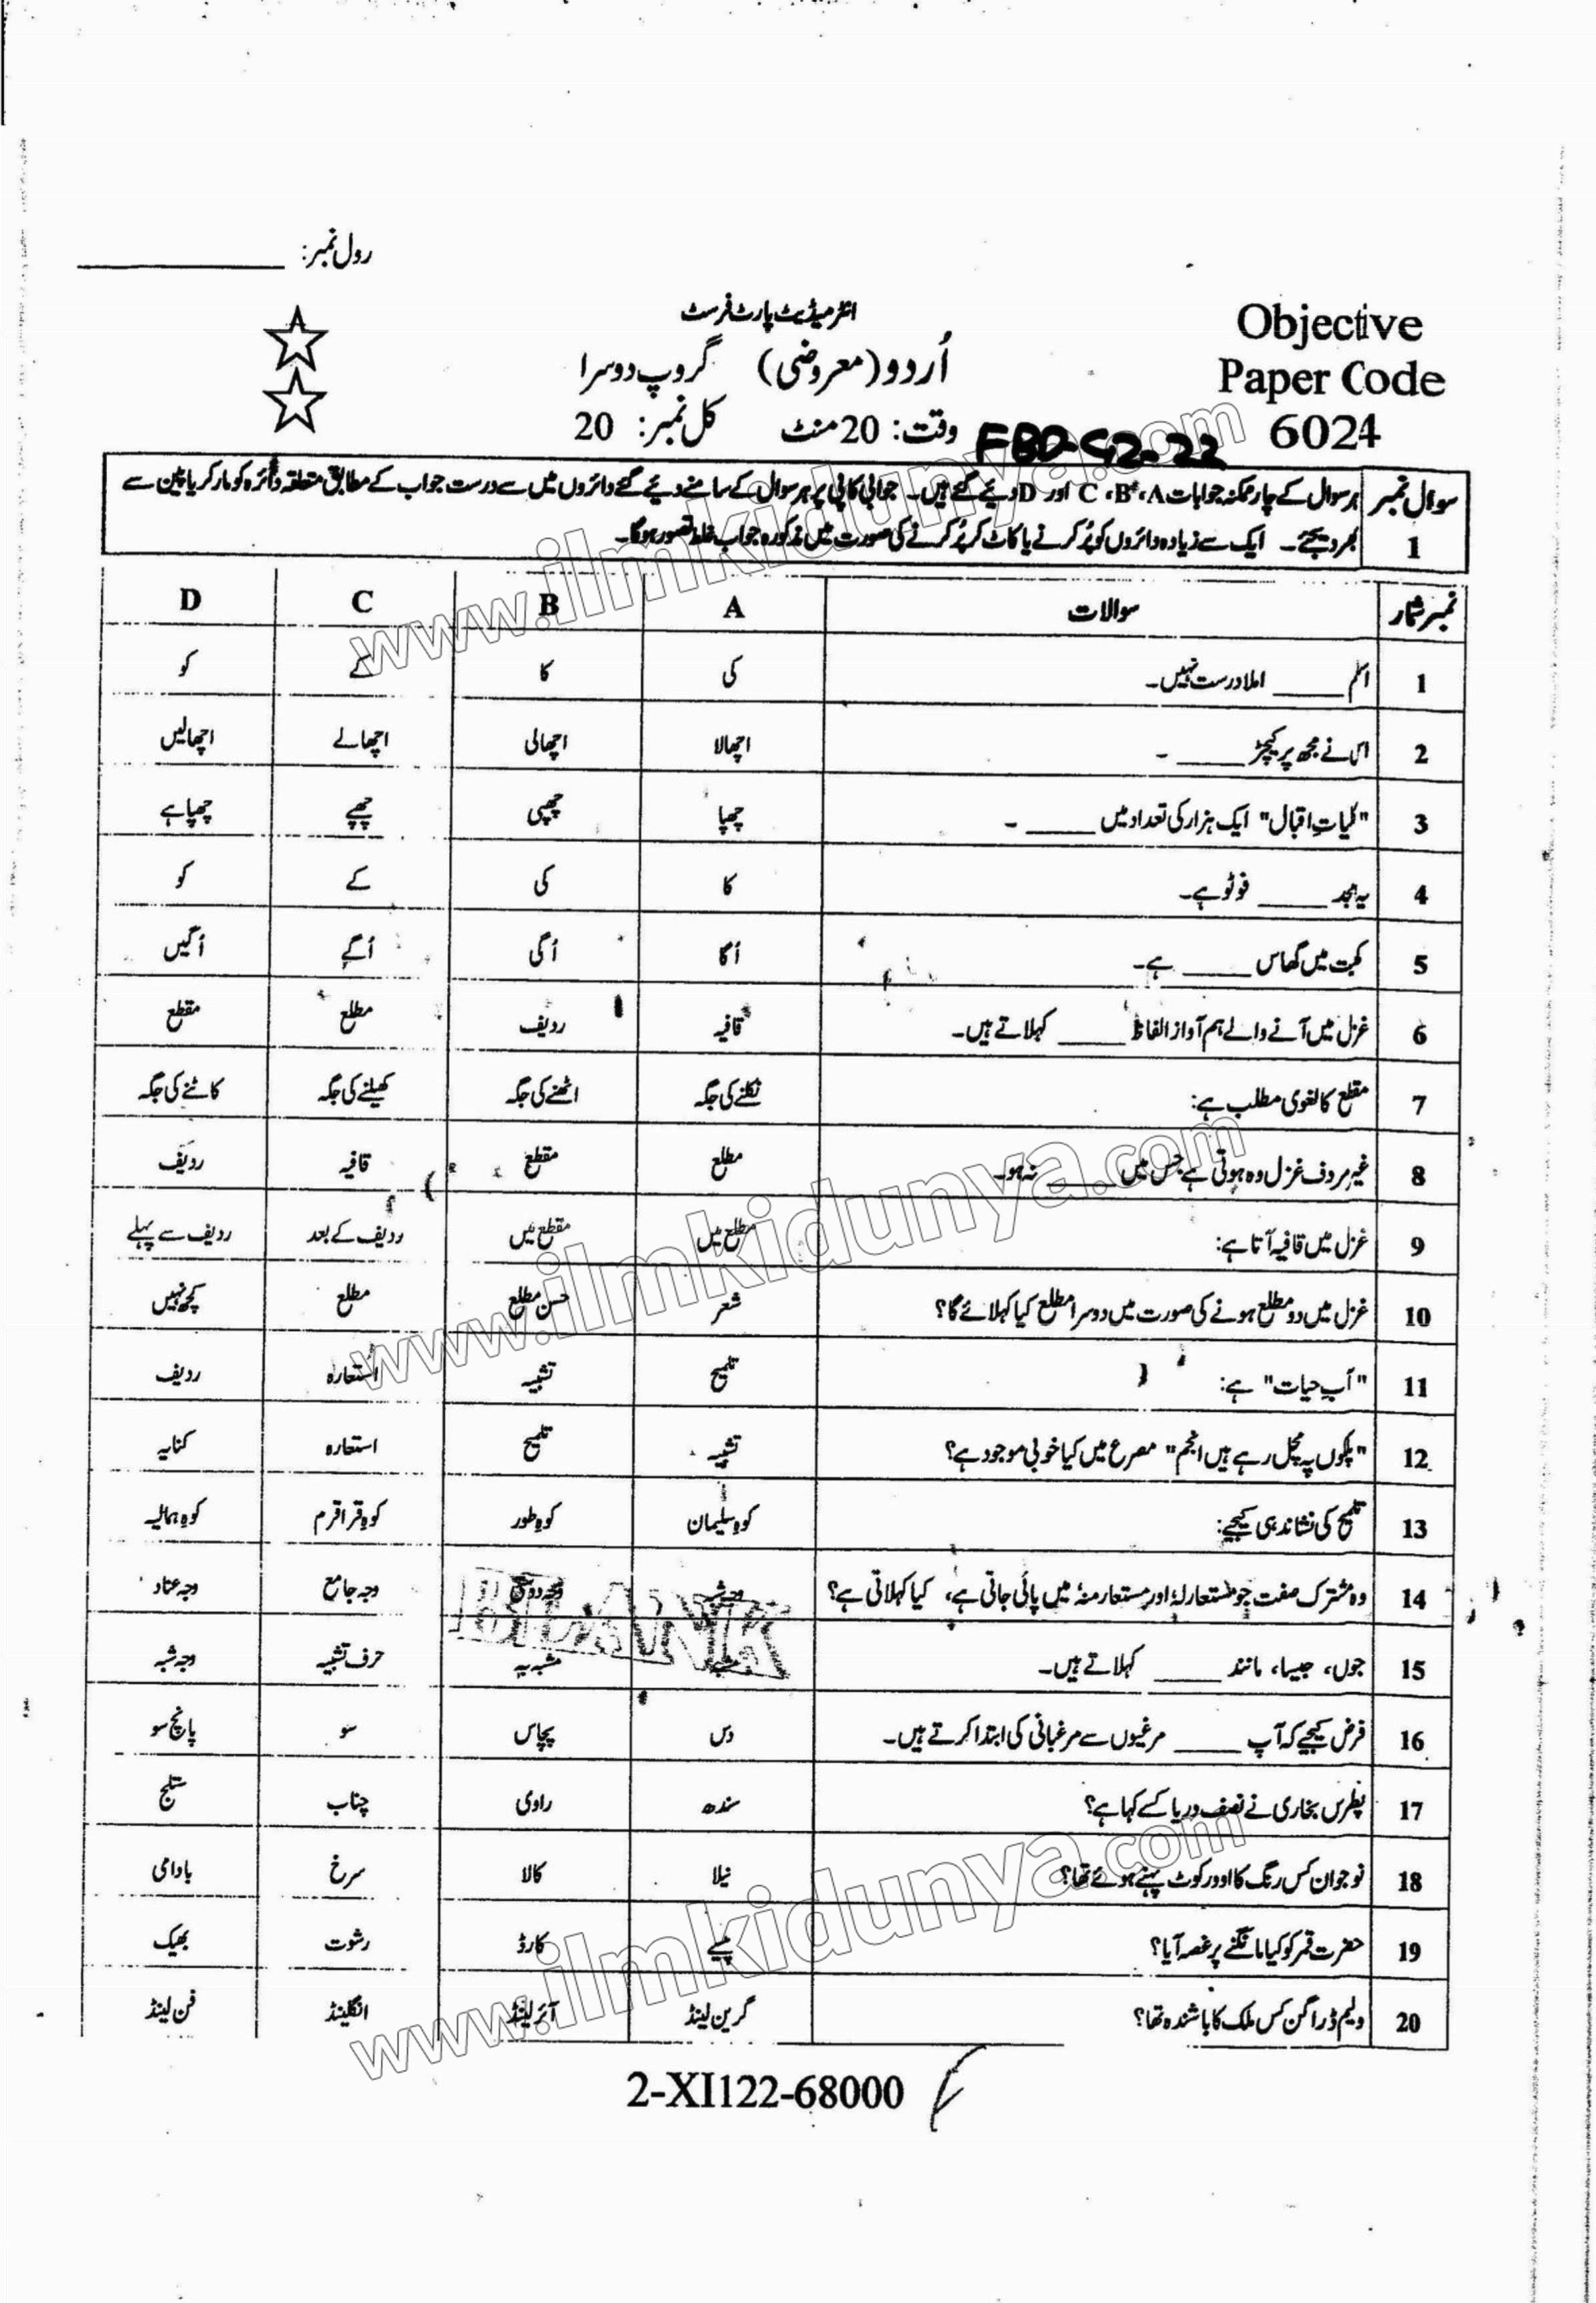 رول نمبر:
انٹرمیڈیٹ پارٹ فرسٹ
Objective
اُردو (معروضی) گروپ دوسرا
Paper Code
وقت: 20 منٹ کل نمبر: 20
6024
FBD-G2-22
سوال نمبر 1
ہر سوال کے چار ممکنہ جوابات A، B، C اور D دیئے گئے ہیں۔ جوابی کاپی پر ہر سوال کے سامنے دیئے گئے دائروں میں سے درست جواب کے مطابق متعلقہ دائرہ کو مارکر یا پین سے
بھر دیجئے۔ ایک سے زیادہ دائروں کو پُر کرنے یا کاٹ کر پُر کرنے کی صورت میں مذکورہ جواب غلط تصور ہوگا۔
نمبر شمار سوالات A B C D
1 اسلم _____ املا درست نہیں۔ کی کا کے کو
2 اس نے مجھ پر کیچڑ _____ ۔ اچھالا اچھالی اچھالے اچھالیں
3 "کلیاتِ اقبال" ایک ہزار کی تعداد میں _____ ۔ چھپا چھپی چھپے چھپا ہے
4 یہ امجد _____ فوٹو ہے۔ کا کی کے کو
5 کھیت میں گھاس _____ ہے۔ اُگا اُگی اُگے اُگیں
6 غزل میں آنے والے ہم آواز الفاظ _____ کہلاتے ہیں۔ قافیہ ردیف مطلع مقطع
7 مقطع کا لغوی مطلب ہے: نکلنے کی جگہ اٹھنے کی جگہ کھیلنے کی جگہ کاٹنے کی جگہ
8 غیر مردف غزل وہ ہوتی ہے جس میں _____ نہ ہو۔ مطلع مقطع قافیہ ردیف
9 غزل میں قافیہ آتا ہے: مطلع میں مقطع میں ردیف کے بعد ردیف سے پہلے
10 غزل میں دو مطلع ہونے کی صورت میں دوسرا مطلع کیا کہلائے گا؟ شعر حسن مطلع مطلع کچھ نہیں
11 "آبِ حیات" ہے: تلمیح تشبیہ استعارہ ردیف
12 "پلکوں پہ مچل رہے ہیں انجم" مصرع میں کیا خوبی موجود ہے؟ تشبیہ تلمیح استعارہ کنایہ
13 تلمیح کی نشاندہی کیجیے: کوہِ سلیمان کوہِ طور کوہِ قراقرم کوہِ ہمالیہ
14 وہ مشترک صفت جو مستعارلہٗ اور مستعار منہٗ میں پائی جاتی ہے، کیا کہلاتی ہے؟ وجہ جامع وجہ عناد
15 جوں، جیسا، مانند _____ کہلاتے ہیں۔ مشبہ بہ حرف تشبیہ وجہ شبہ
16 فرض کیجیے کہ آپ _____ مرغیوں سے مرغبانی کی ابتدا کرتے ہیں۔ دس پچاس سو پانچ سو
17 پطرس بخاری نے نصف دریا کسے کہا ہے؟ سندھ راوی چناب ستلج
18 نوجوان کس رنگ کا اوورکوٹ پہنے ہوئے تھا؟ نیلا کالا سرخ بادامی
19 حضرت قمر کو کیا مانگنے پر غصہ آیا؟ پیسے کارڈ رشوت بھیک
20 ولیم ڈراگن کس ملک کا باشندہ تھا؟ گرین لینڈ آئرلینڈ انگلینڈ فن لینڈ
BLANK
2-XI122-68000
www.ilmkidunya.com
www.ilmkidunya.com
www.ilmkidunya.com